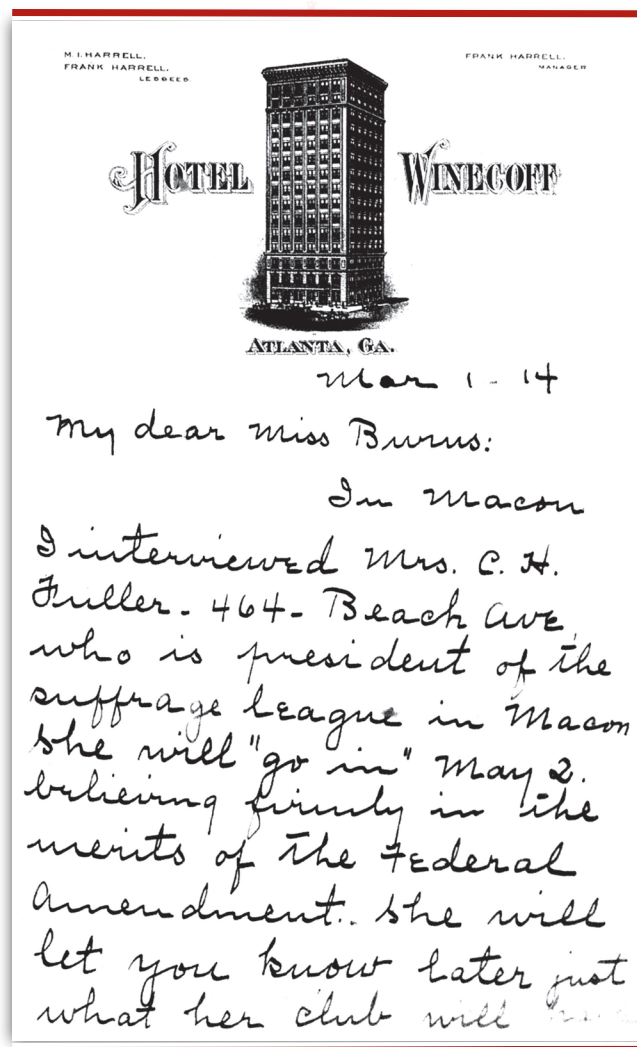 M. I. HARRELL.
FRANK HARRELL.
LESSEES
FRANK HARRELL.
MANAGER
HOTEL WINECOFF
ATLANTA, GA.
Mar 1 - 14
My dear Miss Burns:
In Macon
I interviewed Mrs. C. H.
Fuller - 464 - Beach Ave
who is president of the
suffrage league in Macon
She will "go in" May 2.
believing firmly in the
merits of the Federal
Amendment. She will
let you know later just
what her club will